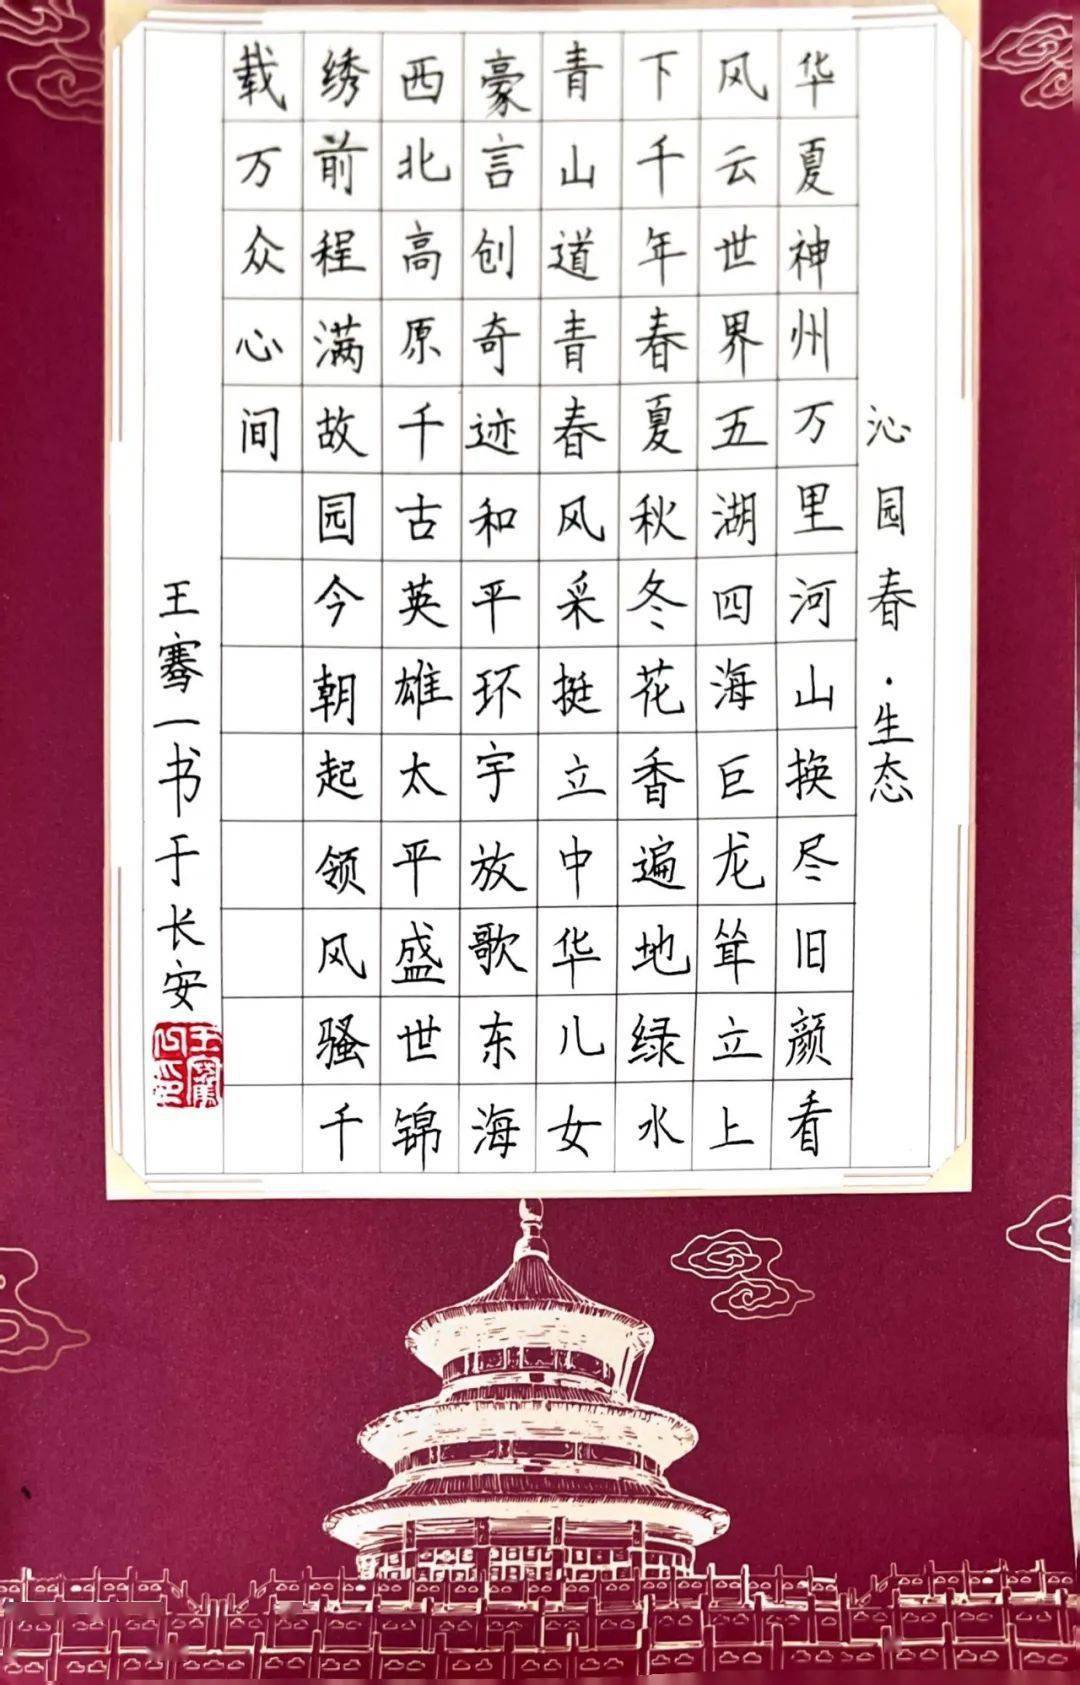 沁园春·生态
华夏神州万里河山换尽旧颜看
风云世界五湖四海巨龙耸立上
下千年春夏秋冬花香遍地绿水
青山道青春风采挺立中华儿女
豪言创奇迹和平环宇放歌东海
西北高原千古英雄太平盛世锦
绣前程满故园今朝起领风骚千
载万众心间
王骞一书于长安